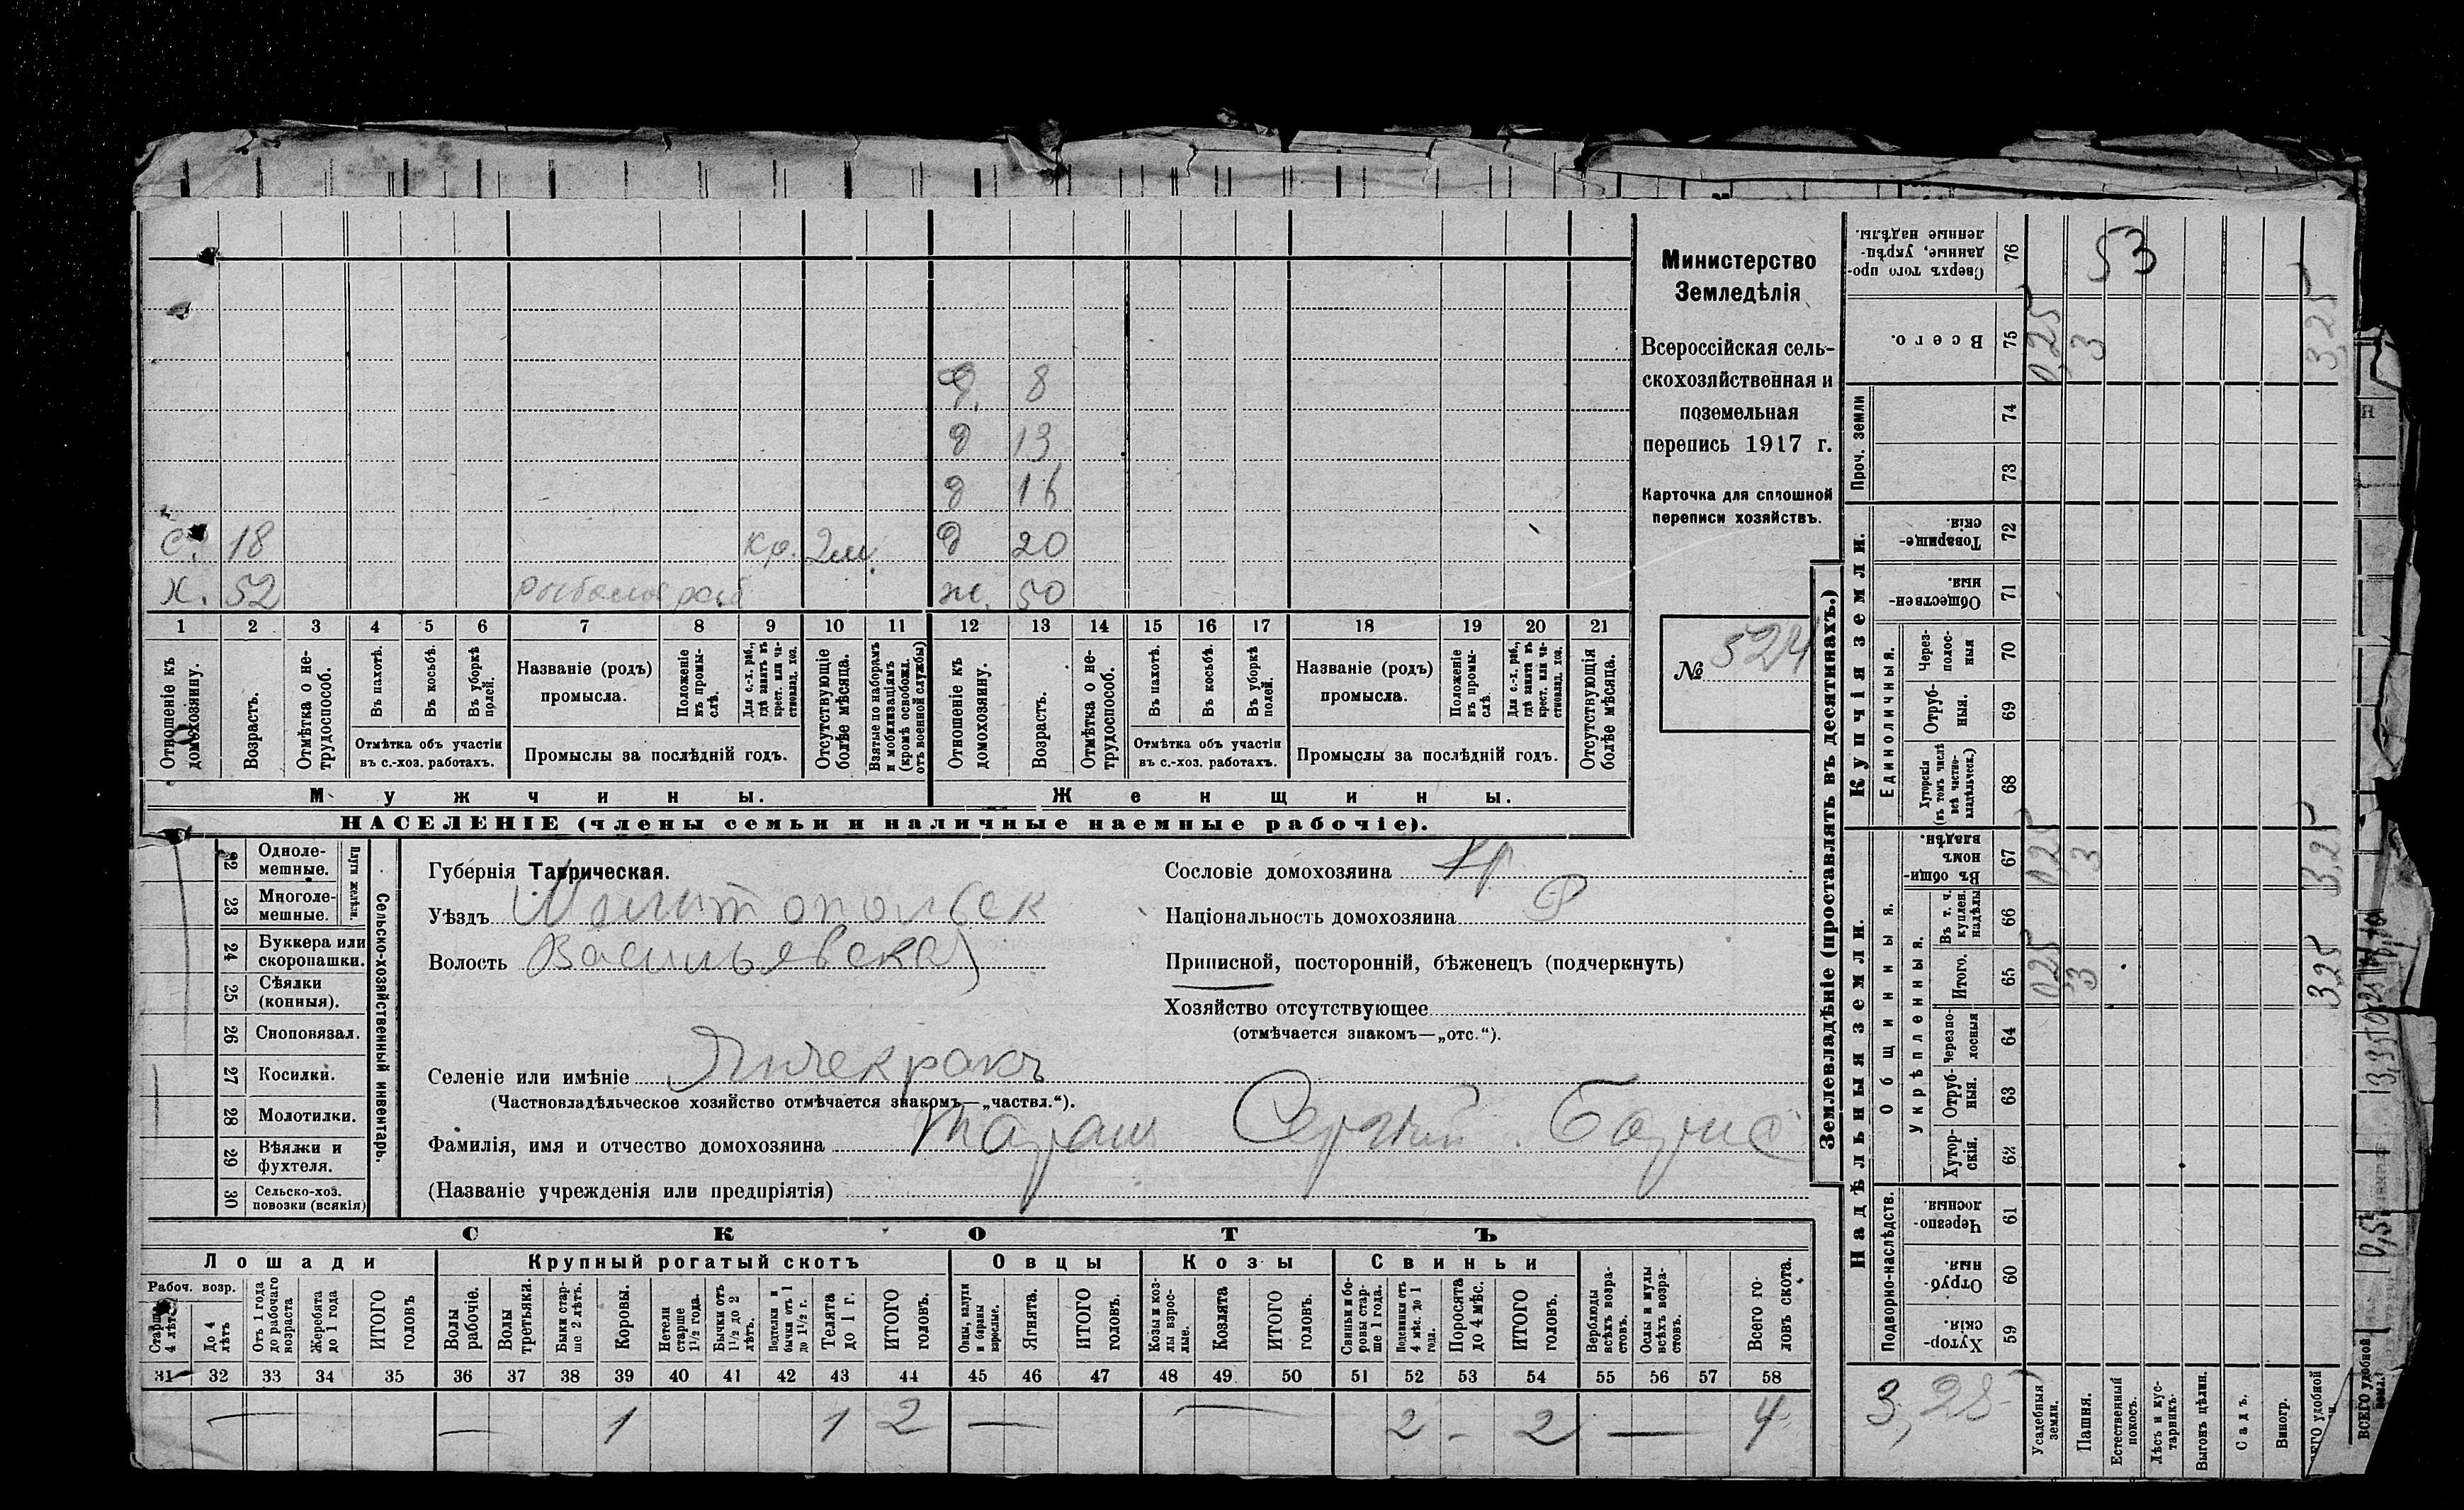 Министерство
Земледѣлія
Всероссійская сель-
скохозяйственная и
поземельная
перепись 1917 г.
Карточка для сплошной
переписи хозяйствъ.
№ 524
д. 8
д 13
д 16
С. 18 Кр. 2м. д 20
Х. 52 ж. 50
1 2 3 4 5 6 7 8 9 10 11 12 13 14 15 16 17 18 19 20 21
Отношеніе къ домохозяину.
Возрастъ.
Отмѣтка о не-
трудоспособ.
Въ пахотѣ.
Въ косьбѣ.
Въ уборкѣ полей.
Отмѣтка объ участіи
въ с.-хоз. работахъ.
Названіе (родъ)
промысла.
Положеніе въ промы-
слѣ.
Для с.-х. раб., гдѣ занятъ въ крест. или ча-
стновлад. хоз.
Промыслы за послѣдній годъ.
Отсутствующіе болѣе мѣсяца.
Взятые по наборамъ и мобилизаціямъ (кромѣ освобожд. отъ военной службы)
Отношеніе къ домохозяину.
Возрастъ.
Отмѣтка о не-
трудоспособ.
Въ пахотѣ.
Въ косьбѣ.
Въ уборкѣ полей.
Отмѣтка объ участіи
въ с.-хоз. работахъ.
Названіе (родъ)
промысла.
Положеніе въ промы-
слѣ.
Для с.-х. раб., гдѣ занятъ въ крест. или ча-
стновлад. хоз.
Промыслы за послѣдній годъ.
Отсутствующія болѣе мѣсяца.
Мужчины. Женщины.
НАСЕЛЕНІЕ (члены семьи и наличные наемные рабочіе).
Сельско-хозяйственный инвентарь.
Плуги желѣзн.
22 Одноле-
мешные.
23 Многоле-
мешные.
24 Буккера или
скоропашки.
25 Сѣялки
(конныя).
26 Сноповязал.
27 Косилки.
28 Молотилки.
29 Вѣялки и
фухтеля.
30 Сельско-хоз.
повозки (всякія)
Губернія Таврическая.
Уѣздъ Мелитопольск
Волость Васильевская
Селеніе или имѣніе Янчекракъ
(Частновладѣльческое хозяйство отмѣчается знакомъ—„частвл.“).
Фамилія, имя и отчество домохозяина Таран Сергѣй Борис
(Названіе учрежденія или предпріятія)
Сословіе домохозяина Кр.
Національность домохозяина Р
Приписной, посторонній, бѣженецъ (подчеркнуть)
Хозяйство отсутствующее
(отмѣчается знакомъ—„отс.“).
СКОТЪ
Лошади Крупный рогатый скотъ Овцы Козы Свиньи
Рабоч. возр.
Старше 4 лѣтъ
До 4 лѣтъ
Отъ 1 года до рабочаго возраста
Жеребята до 1 года
ИТОГО головъ
Волы рабочіе.
Волы третьяки.
Быки стар-
ше 2 лѣтъ.
Коровы.
Нетели старше 1½ года.
Бычки отъ 1½ до 2 лѣтъ.
Подтелки и бычки отъ 1 до 1½ г.
Телята до 1 г.
ИТОГО головъ.
Овцы, валухи и бараны взрослые.
Ягнята.
ИТОГО головъ.
Козы и коз-
лы взрос-
лые.
Козлята
ИТОГО головъ.
Свиньи и бо-
ровы стар-
ше 1 года.
Подсвинки отъ 4 мѣс. до 1 года.
Поросята до 4 мѣс.
ИТОГО головъ.
Верблюды всѣхъ возра-
стовъ.
Ослы и мулы всѣхъ возра-
стовъ.
Всего го-
ловъ скота.
31 32 33 34 35 36 37 38 39 40 41 42 43 44 45 46 47 48 49 50 51 52 53 54 55 56 57 58
— — 1 1 2 — — 2 - 2 — 4
Землевладѣніе (проставлять въ десятинахъ.)
Надѣльныя земли. Купчія земли. Проч. земли
Подворно-наслѣдств.
Общинныя.
Укрѣпленныя.
Единоличныя.
Сверхъ того про-
данные, укрѣп-
ленные надѣлы.
76 53
Всего.
75 0,25 3 3,25
74
73
Товарище-
скія.
72
Обществен-
ныя.
71
Через-
полос-
ныя
70
Отруб-
ныя.
69
Хуторскія
(въ томъ числѣ
всѣ частно-
владѣльческ.)
68
Въ общин-
номъ
владѣн.
67 0,25 3 3,25
Въ т. ч.
куплен.
надѣлы
66
Итого.
65 0,25 3 3,25
Черезпо-
лосныя
64
Отруб-
ныя.
63
Хутор-
скія.
62
Черезпо-
лосныя.
61
Отруб-
ныя.
60
Хутор-
скія.
59
3,25
Усадебныя земли.
Пашня.
Естественный покосъ.
Лѣсъ и кус-
тарникъ.
Выгонъ цѣлин.
Садъ.
Виногр.
ВСЕГО удобной